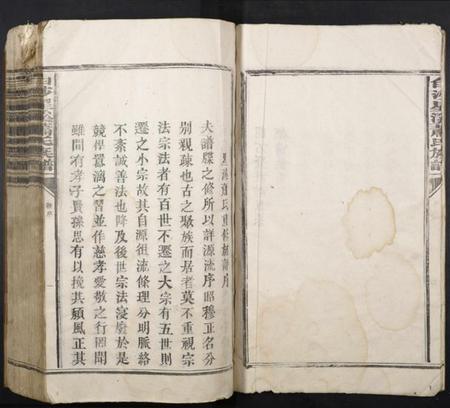 星溪蕭氏重修族譜序
夫譜牒之修所以詳源流序昭穆正名分
別親疎也古之聚族而居者莫不重視宗
法宗法者有百世不遷之大宗有五世則
遷之小宗故其自源徂流條理分明脈絡
不紊誠善法也降及後世宗法寖廢於是
競學囂漓之習並作慈孝愛敬之行罔聞
雖間有孝子賢孫思有以挽其頹風正其
白沙星溪蕭氏族譜